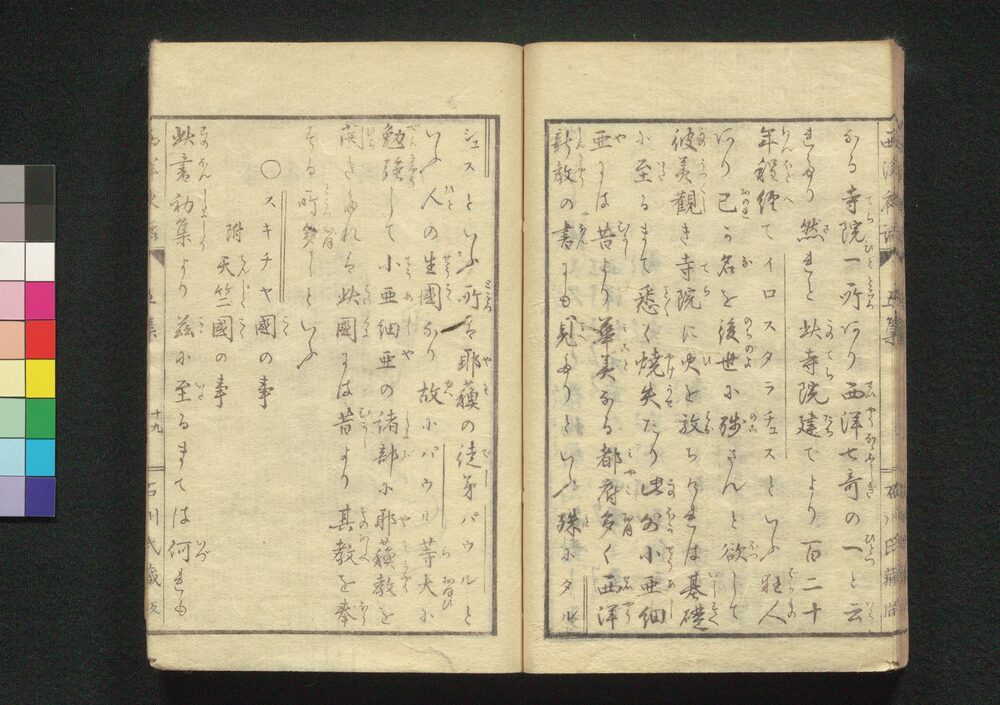 なる寺院一所あり西洋七奇の一と云
きたり然るに此寺院建てより百二十
年程経てイロスタラチュスといふ狂人
あり己が名を後世に残さんと欲して
彼美観き寺院に火を放ちければ基礎
に至るまて悉く焼失たり此外小亜細
亜には昔より華美なる都府多く西洋
新教の書にも見たりといふ殊にタル
シュスといふ所は耶蘇の徒弟パウルと
いふ人の生國なり故にパウル等大に
勉強して小亜細亜の諸部に耶蘇教を
れば此國には昔より其教を奉
する所多しといふ
○スキチヤ國の事
附天竺國の事
此書初集より茲に至るまては何れも
十九
石川氏蔵版